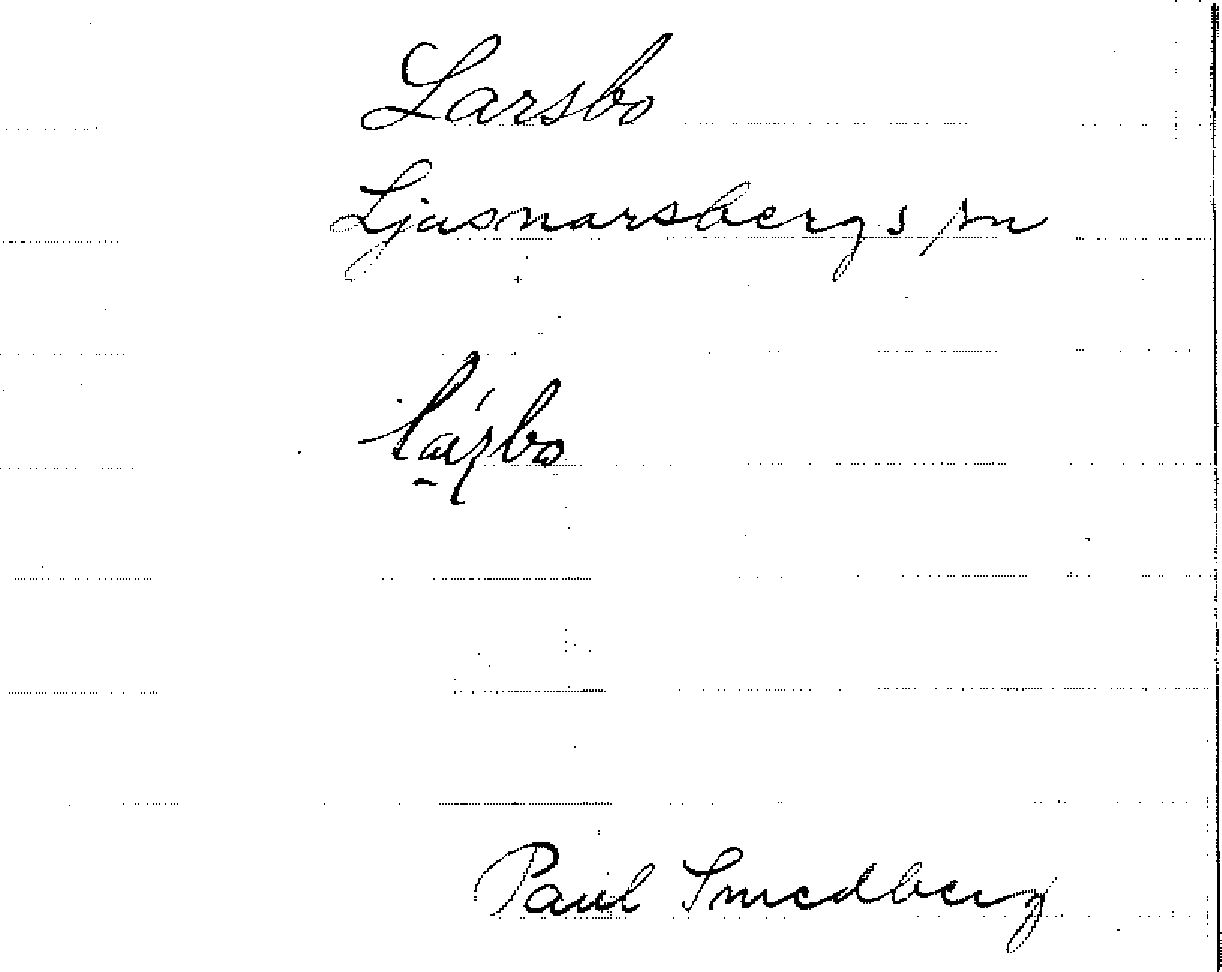 Larsbo
Ljusnarsbergs sn
Paul Smedberg